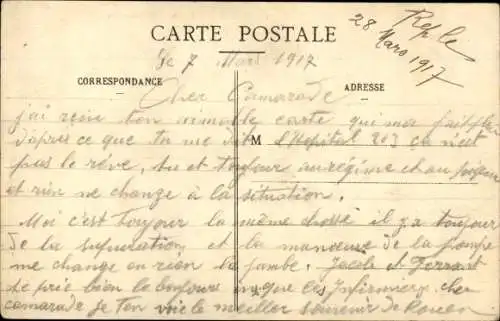 CARTE POSTALE
Replié
28 Mars 1917
Le 7 Mars 1917
CORRESPONDANCE
ADRESSE
Cher Camarade
j'ai reçu ton aimable carte qui ma fait
d'apres ce que tu me dit l'Hopital 203 ca n'est
M
pas le rêve, tu et toujour au régime et au
et rien ne change à la situation.
Moi c'est Toujour la même chosse il y a toujour
de la supuration et la manoeuve de la pompe
me change en rien la jambe. Jacob et Ferrant
te prie bien le bonjours que les Infirmiers. cher
camarade je T'en voie le meilleur souvenir de Rouen